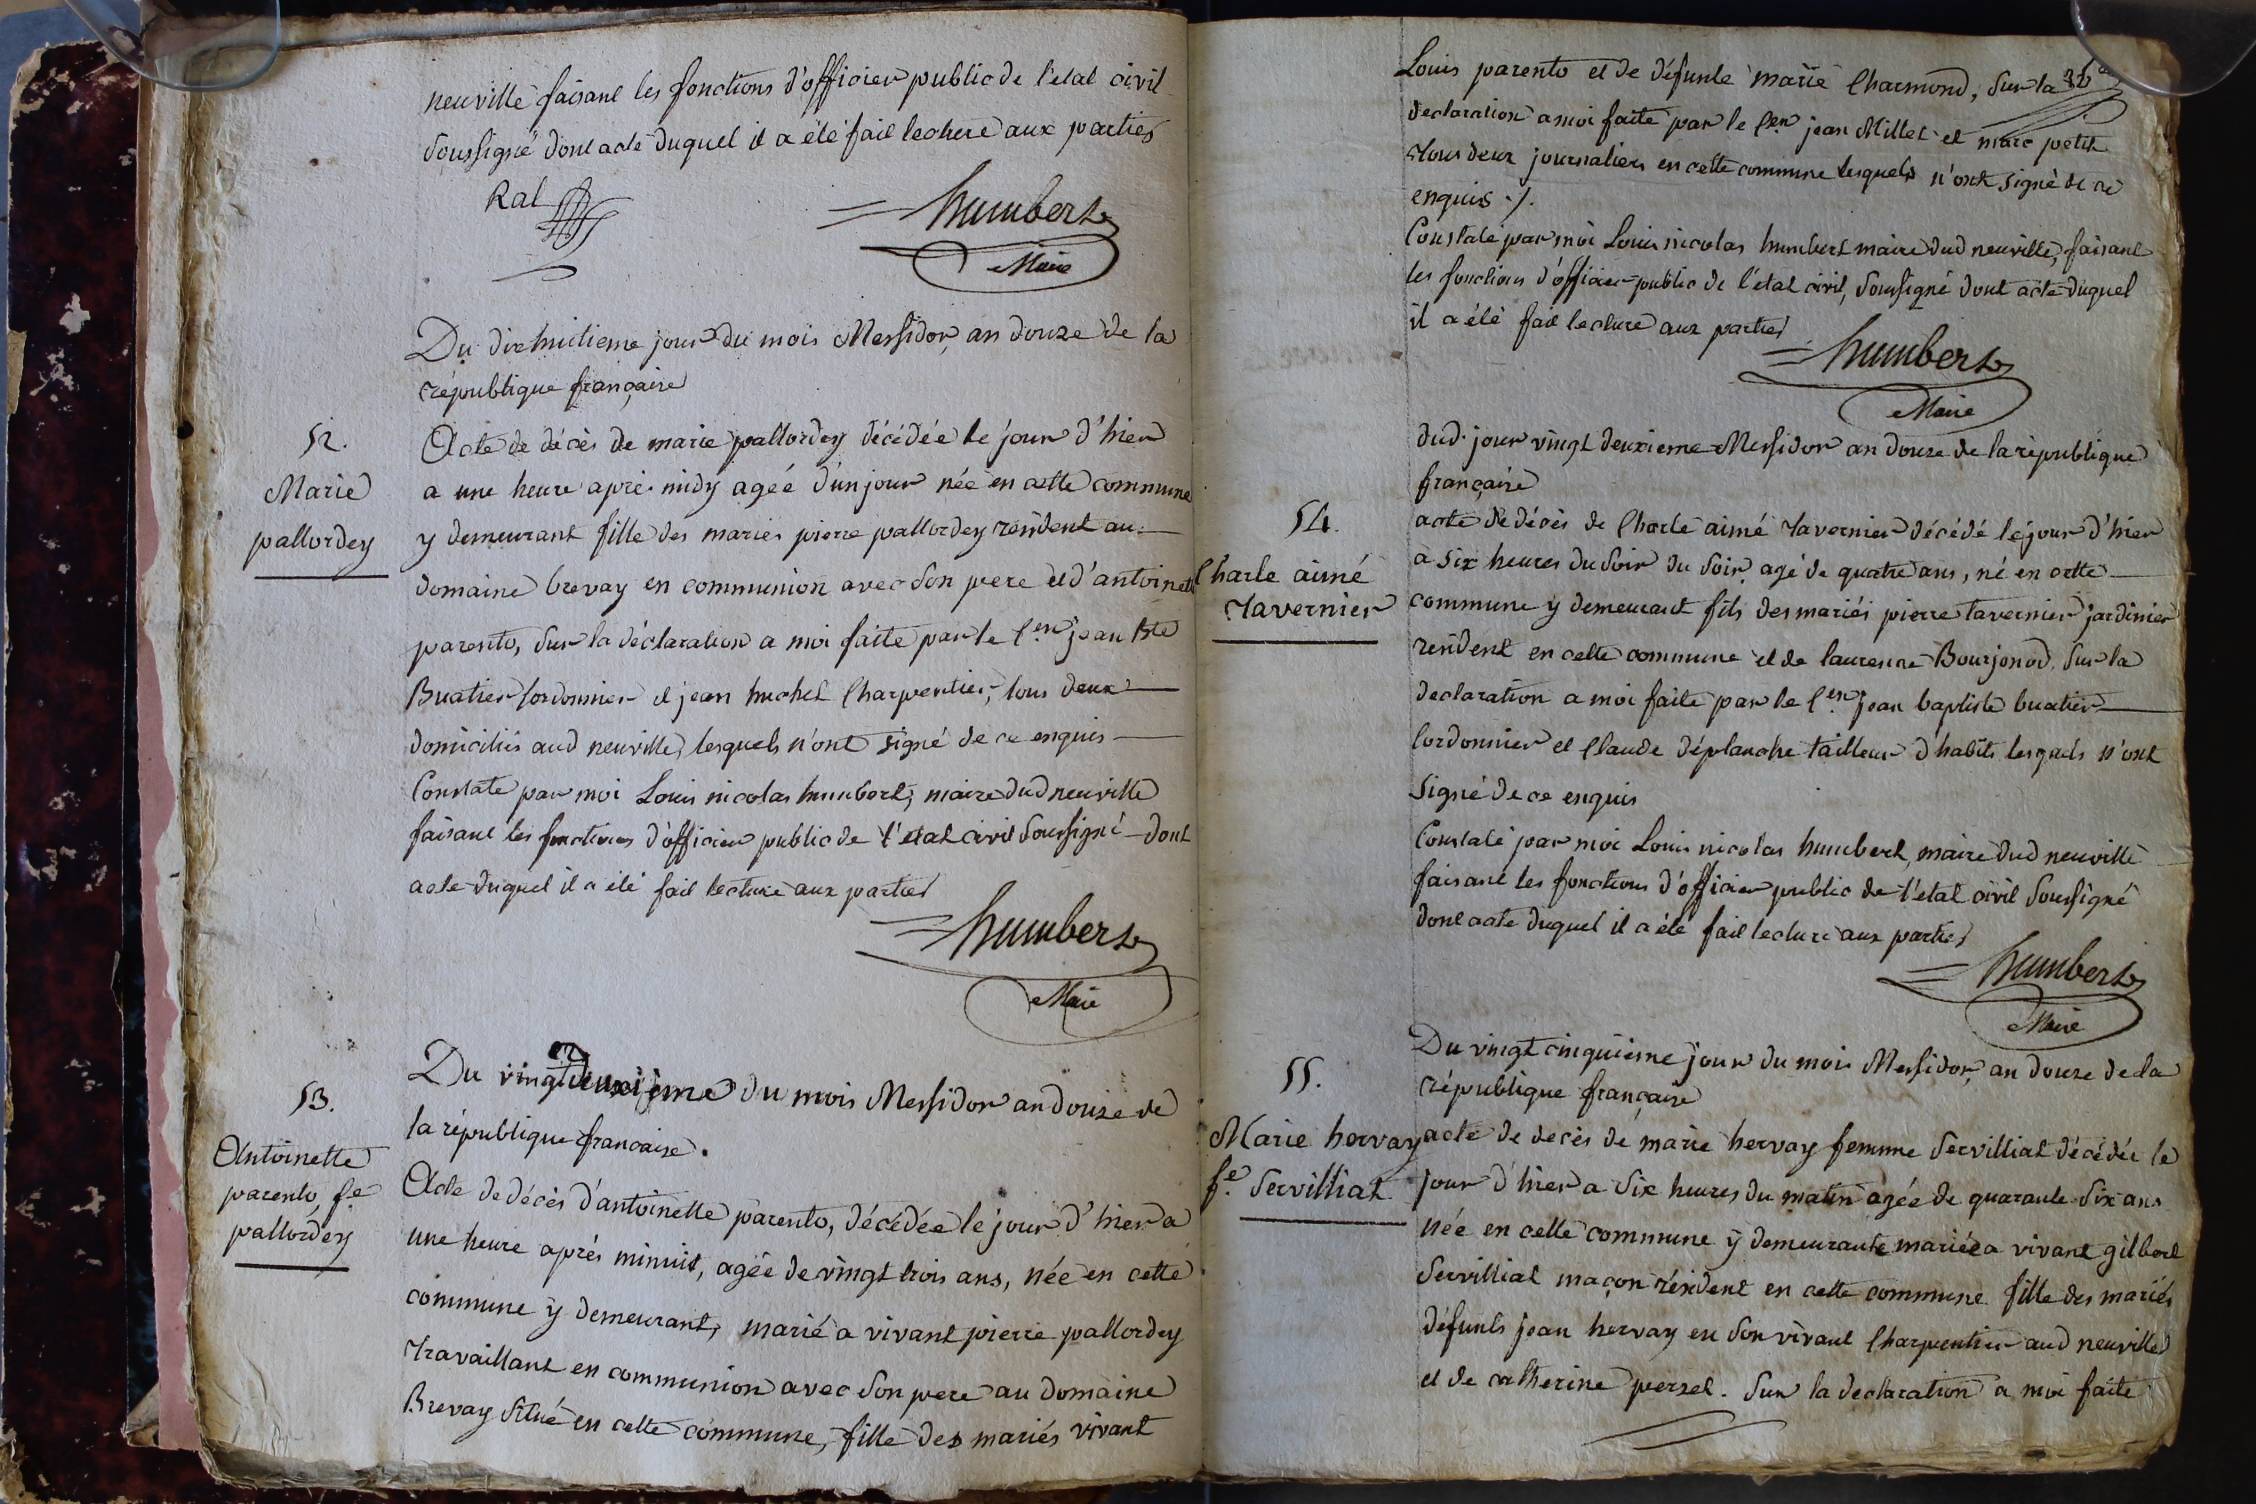 neuville faisant les fonctions d'officier public de l'etat civil
soussigné dont acte duquel il a été fait lecture aux parties
Ral
humbert
Maire
Du dixhuitieme jour du mois Messidor, an douze de la
république française
52.
Marie
pallordey
Acte de décès de marie pallordey décédée le jour d'hier
a une heure après midy agée d'un jour née en cette commune
y demeurant fille des mariés pierre pallordey résident au
domaine brevay en communion avec son pere et d'antoinette
parento, sur la déclaration a moi faite par le Cen jean Bte
Buatier Cordonnier et jean huchet Charpentier, tous deux
domiciliés aud neuville, lesquels n'ont signé de ce enquis
Constaté par moi Louis nicolas humbert, maire dud neuville
faisant les fonctions d'officier public de l'etat civil soussigné dont
acte duquel il a été fait lecture aux parties
humbert
Maire
53.
Antoinette
parento fe
pallordey
Du vingt deuxième du mois Messidor an douze de
la république francaise.
Acte de décès d'antoinette parento, décédée le jour d'hier a
une heure aprés minuit, agée de vingt trois ans, née en cette
commune ÿ demeurant, marié a vivant pierre pallordey
travaillant en communion avec son pere au domaine
Brevay situé en cette commune, fille des mariés vivant
Louis parento et de défunte marie Charmond, sur la
declaration a moi faite par le Cen jean Millet et marc petit
tous deux journaliers en cette commune lesquels n'ont signé de ce
enquis ./.
Constaté par moi Louis nicolas humbert maire dud neuville, faisant
les fonctions d'officier public de l'état civil, soussigné dont acte duquel
il a été fait lecture aux parties
humbert
Maire
dud. jour vingt deuxieme Messidor an douze de la république
française
54.
Charle aimé
tavernier
acte de décès de Charle aimé tavernier décédé le jour d'hier
a six heures du soir du soir agé de quatre ans, né en cette
commune y demeurant fils des mariés pierre tavernier jardinier
résident en cette commune et de laurence Bourjonod, sur la
declaration a moi faite par le Cen jean baptiste buatier
Cordonnier et Claude déplanche tailleur d'habits lesquels n'ont
signé de ce enquis
Constaté par moi Louis nicolas humbert, maire dud neuville
faisant les fonctions d'officier public de l'état civil soussigné
dont acte duquel il a été fait lecture aux parties
humbert
Maire
55.
Marie hervay
fe. Servilliat
Du vingt cinquième jour du mois Messidor, an douze de la
république française
acte de decès de marie hervay femme Servilliat décédée le
jour d'hier a six heures du matin agée de quarante six ans
née en cette commune ÿ demeurante mariée a vivant gilbert
Servilliat maçon résident en cette commune fille des mariés
défunts jean hervay en son vivant Charpentier aud neuville
et de catherine perzel. sur la declaration a moi faite